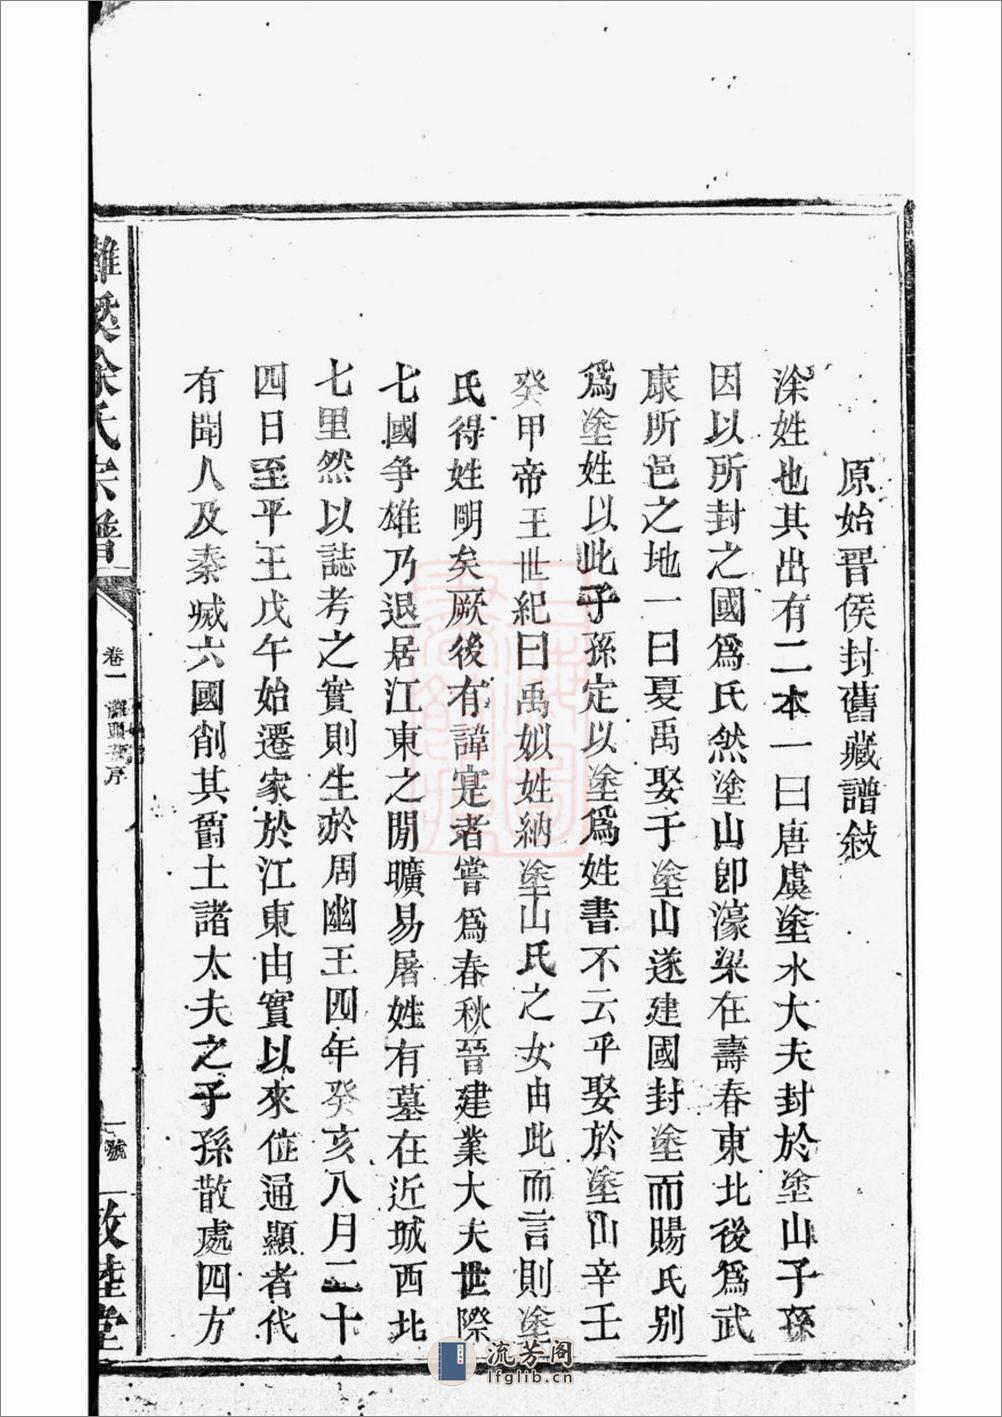 原始晉侯封舊藏譜敍
涂姓也其出有二本一曰唐虞塗水大夫封於塗山子孫
因以所封之國爲氏然塗山卽濠梁在壽春東北後爲武
康所邑之地一曰夏禹娶于塗山遂建國封塗而賜氏別
爲塗姓以此子孫定以塗爲姓書不云乎娶於塗山辛壬
癸甲帝王世紀曰禹姒姓納塗山氏之女由此而言則塗
氏得姓明矣厥後有諱寔者嘗爲春秋晉建業大夫世際
七國爭雄乃退居江東之閒曠易屠姓有墓在近城西北
七里然以誌考之實則生於周幽王四年癸亥八月二十
四日至平王戊午始遷家於江東由實以來位通顯者代
有聞人及秦滅六國削其爵土諸太夫之子孫散處四方
灘溪涂氏宗譜
卷一
序
一號
敦睦堂
流芳阁
lfglib.cn